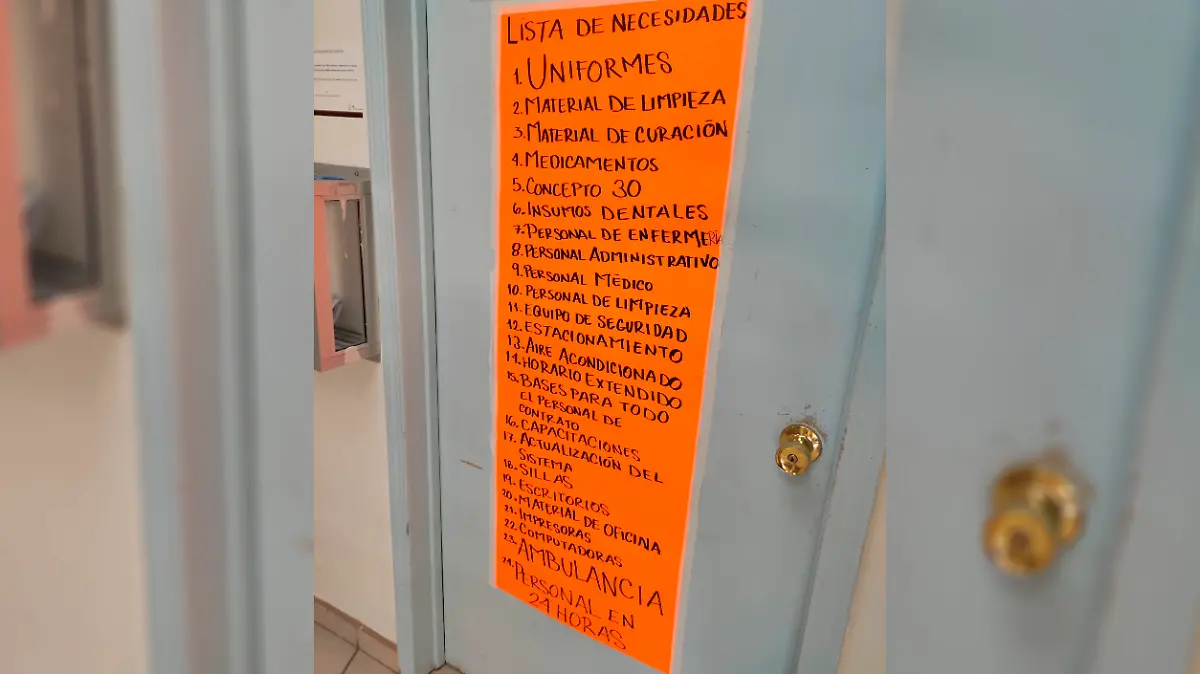 LISTA DE NECESIDADES
1. UNIFORMES
2. MATERIAL DE LIMPIEZA
3. MATERIAL DE CURACIÓN
4. MEDICAMENTOS
5. CONCEPTO 30
6. INSUMOS DENTALES
7. PERSONAL DE ENFERMERÍA
8. PERSONAL ADMINISTRATIVO
9. PERSONAL MÉDICO
10. PERSONAL DE LIMPIEZA
11. EQUIPO DE SEGURIDAD
12. ESTACIONAMIENTO
13. AIRE ACONDICIONADO
14. HORARIO EXTENDIDO
15. BASES PARA TODO
EL PERSONAL DE
CONTRATO
16. CAPACITACIONES
17. ACTUALIZACIÓN DEL
SISTEMA
18. SILLAS
19. ESCRITORIOS
20. MATERIAL DE OFICINA
21. IMPRESORAS
22. COMPUTADORAS
23. AMBULANCIA
24. PERSONAL EN
24 HORAS